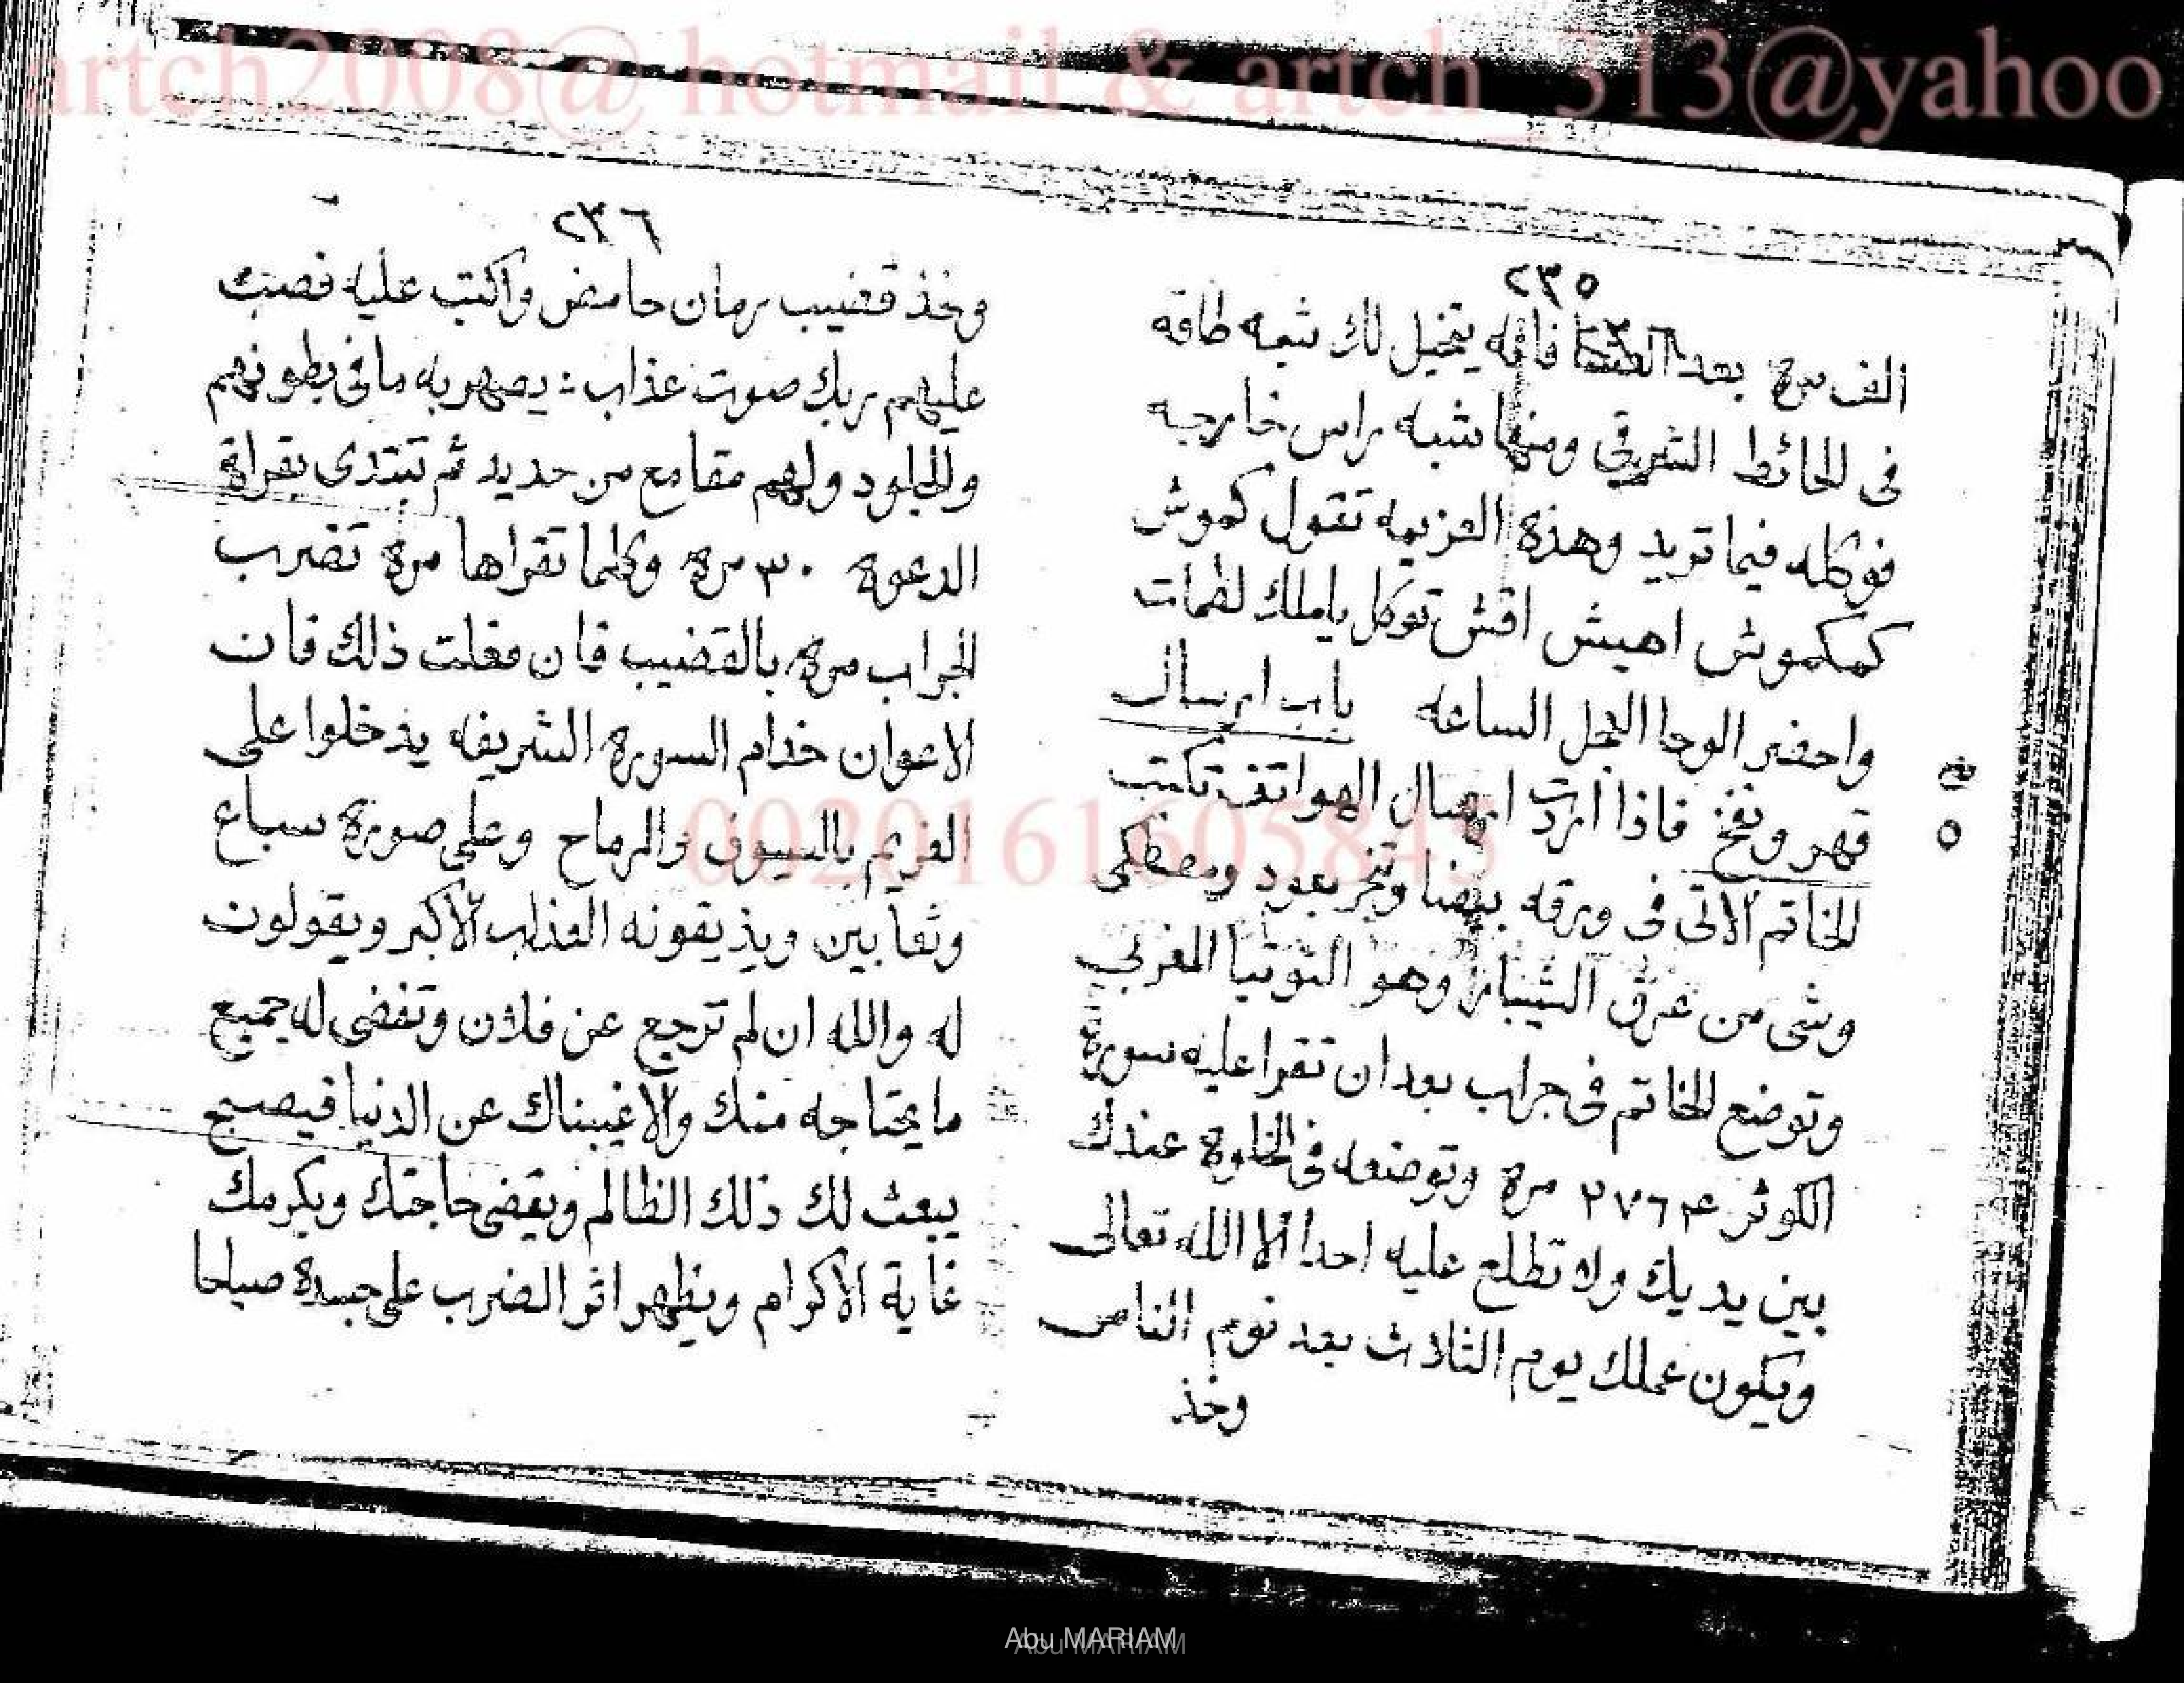 artch2008@ hotmail & artch_313@yahoo
٢٣٥
الف مره بعد العشا فانه يتخيل لك شبه طاقه
فى الحائط الشرقي ومنها شبه راس خارجه
فوكله فيما تريد وهذه العزيمه تقول كموش
كمكموش اهيش اقش توكل يا ملك
واحضر الوحا العجل الساعه باب ارسال
قهر ونفخ فاذا اردت ارسال الهواتف تكتب
الخاتم الاتى فى ورقه بيضا وتبخر بعود ومصطكى
وشى من عرق وهو التوتيا المغربى
وتوضع الخاتم فى جراب بعد ان تقرا عليه سورة
الكوثر مرة وتوضعه فى الخلوة عندك
بين يديك ولا تطلع عليه احدا الا الله تعالى
ويكون عملك يوم الثلاث بعد نوم الناس
وخذ
٥
٢٣٦
وخذ قضيب رمان حامض واكتب عليه فصب
عليهم ربك صوت عذاب : يصهر به ما فى بطونهم
والجلود ولهم مقامع من حديد ثم تبتدى بقراة
الدعوة ٣٠ مرة وكلما تقراها مرة تضرب
الجراب مرة بالقضيب فان فعلت ذلك فان
الاعوان خدام السورة الشريفه يدخلوا على
الغريم بالسيوف والرماح وعلى صورة سباع
وثعابين ويذيقونه العذاب الاكبر ويقولون
له والله ان لم ترجع عن فلان وتقضى له جميع
ما يحتاجه منك والا غيبناك عن الدنيا فيصبح
يبعث لك ذلك الظالم ويقضى حاجتك ويكرمك
غاية الاكرام ويظهر اثر الضرب على جسده صباحا
0020161605845
Abu MARIAM